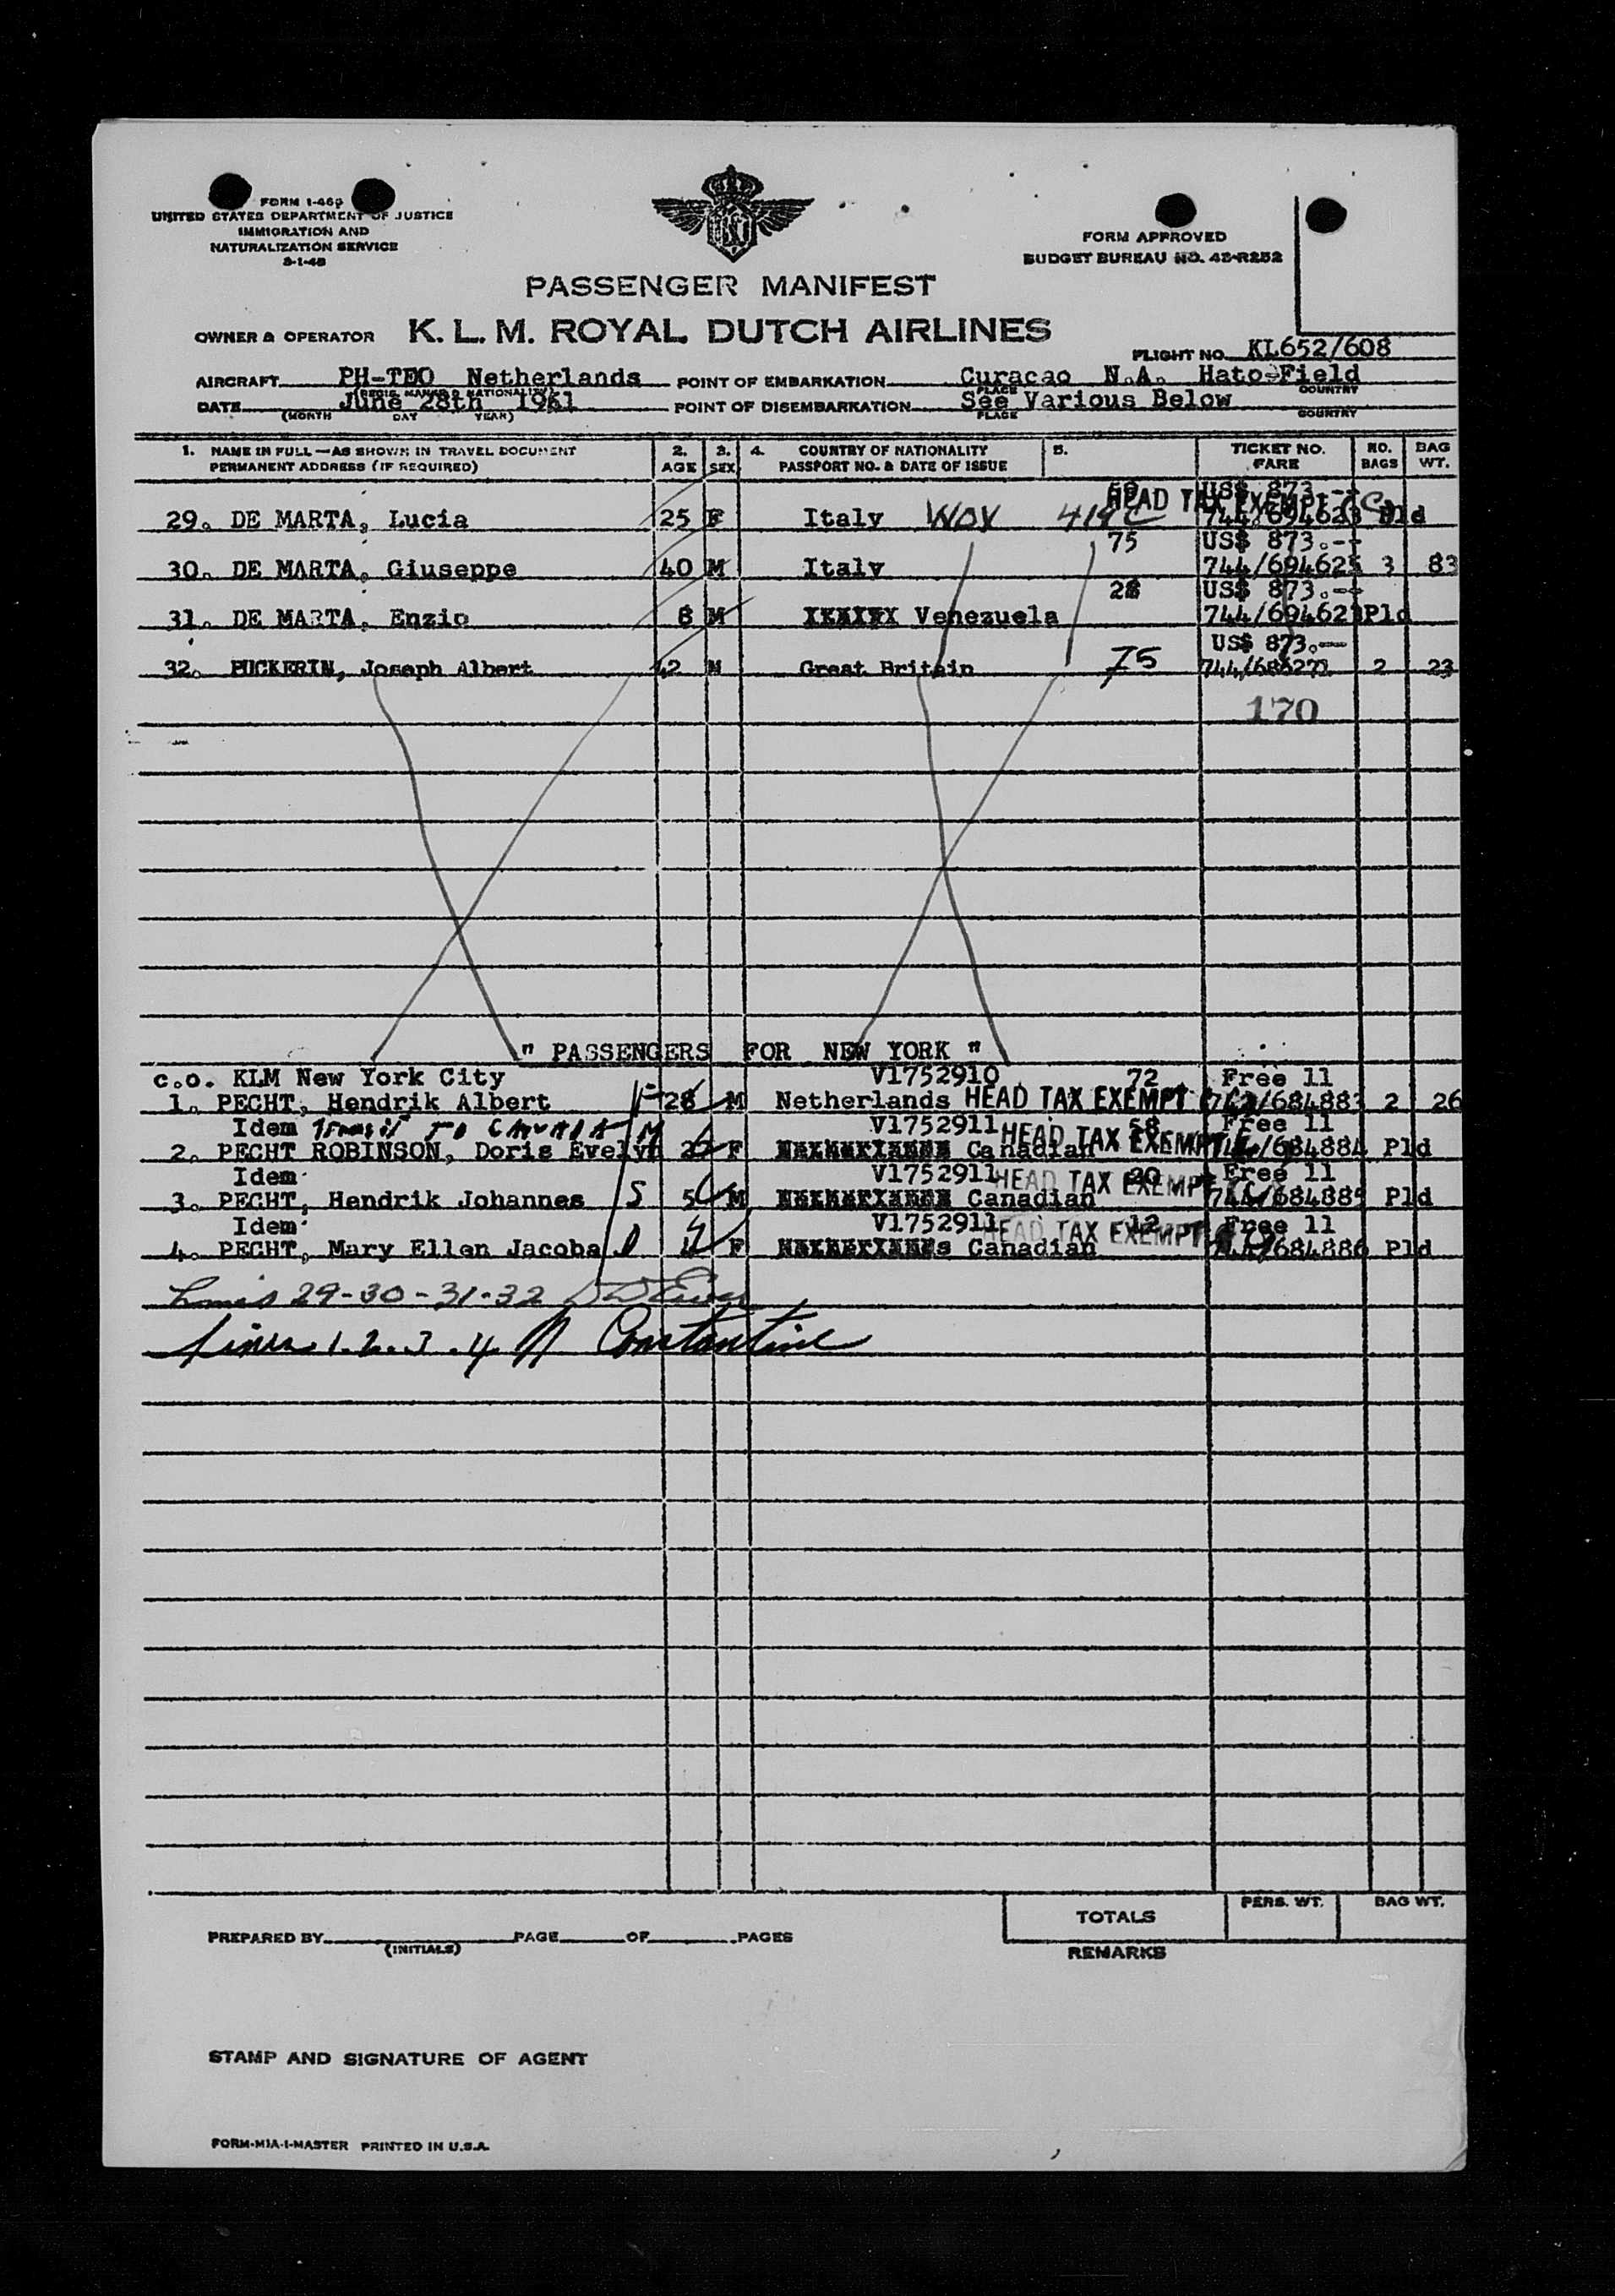 FORM I-466
UNITED STATES DEPARTMENT OF JUSTICE
IMMIGRATION AND
NATURALIZATION SERVICE
FORM APPROVED
BUDGET BUREAU NO. 43-R252
PASSENGER MANIFEST
OWNER & OPERATOR K. L. M. ROYAL DUTCH AIRLINES
FLIGHT NO. KL652/608
AIRCRAFT PH-TEO Netherlands POINT OF EMBARKATION Curacao N.A. Hato-Field
(REGIS. MARKS & NATIONALITY) PLACE COUNTRY
DATE June 28th 1951 POINT OF DISEMBARKATION See Various Below
(MONTH DAY YEAR) PLACE COUNTRY
1. NAME IN FULL—AS SHOWN IN TRAVEL DOCUMENT 2. 3. 4. COUNTRY OF NATIONALITY 5. TICKET NO. NO. BAG
PERMANENT ADDRESS (IF REQUIRED) AGE SEX PASSPORT NO. & DATE OF ISSUE FARE BAGS WT.
HEAD TAX EXEMPT US$ 873.--
29. DE MARTA, Lucia 25 F Italy 744/694623 Pld
75 US$ 873.--
30. DE MARTA, Giuseppe 40 M Italy 744/694625 3 83
28 US$ 873.--
31. DE MARTA, Enzio 8 M Venezuela 744/694623 Pld
US$ 873.--
32. PUCKERIN, Joseph Albert 42 M Great Britain 75 2 23
170
" PASSENGERS FOR NEW YORK "
c.o. KLM New York City V1752910 72 Free 11
1. PECHT, Hendrik Albert 28 M Netherlands HEAD TAX EXEMPT /684883 2 26
Idem Transit TO CANADA V1752911 58 Free 11
2. PECHT ROBINSON, Doris Evelyn F Canadian HEAD TAX EXEMPT /684884 Pld
Idem V1752911 20 Free 11
3. PECHT, Hendrik Johannes S 5 M Canadian HEAD TAX EXEMPT 744/684885 Pld
Idem V1752911 12 Free 11
4. PECHT, Mary Ellen Jacoba F Canadian HEAD TAX EXEMPT /684886 Pld
29-30-31-32
Lines 1.2.3.4 Constantine
TOTALS PERS. WT. BAG WT.
PREPARED BY PAGE OF PAGES
(INITIALS)
REMARKS
STAMP AND SIGNATURE OF AGENT
FORM-MIA-1-MASTER PRINTED IN U.S.A.